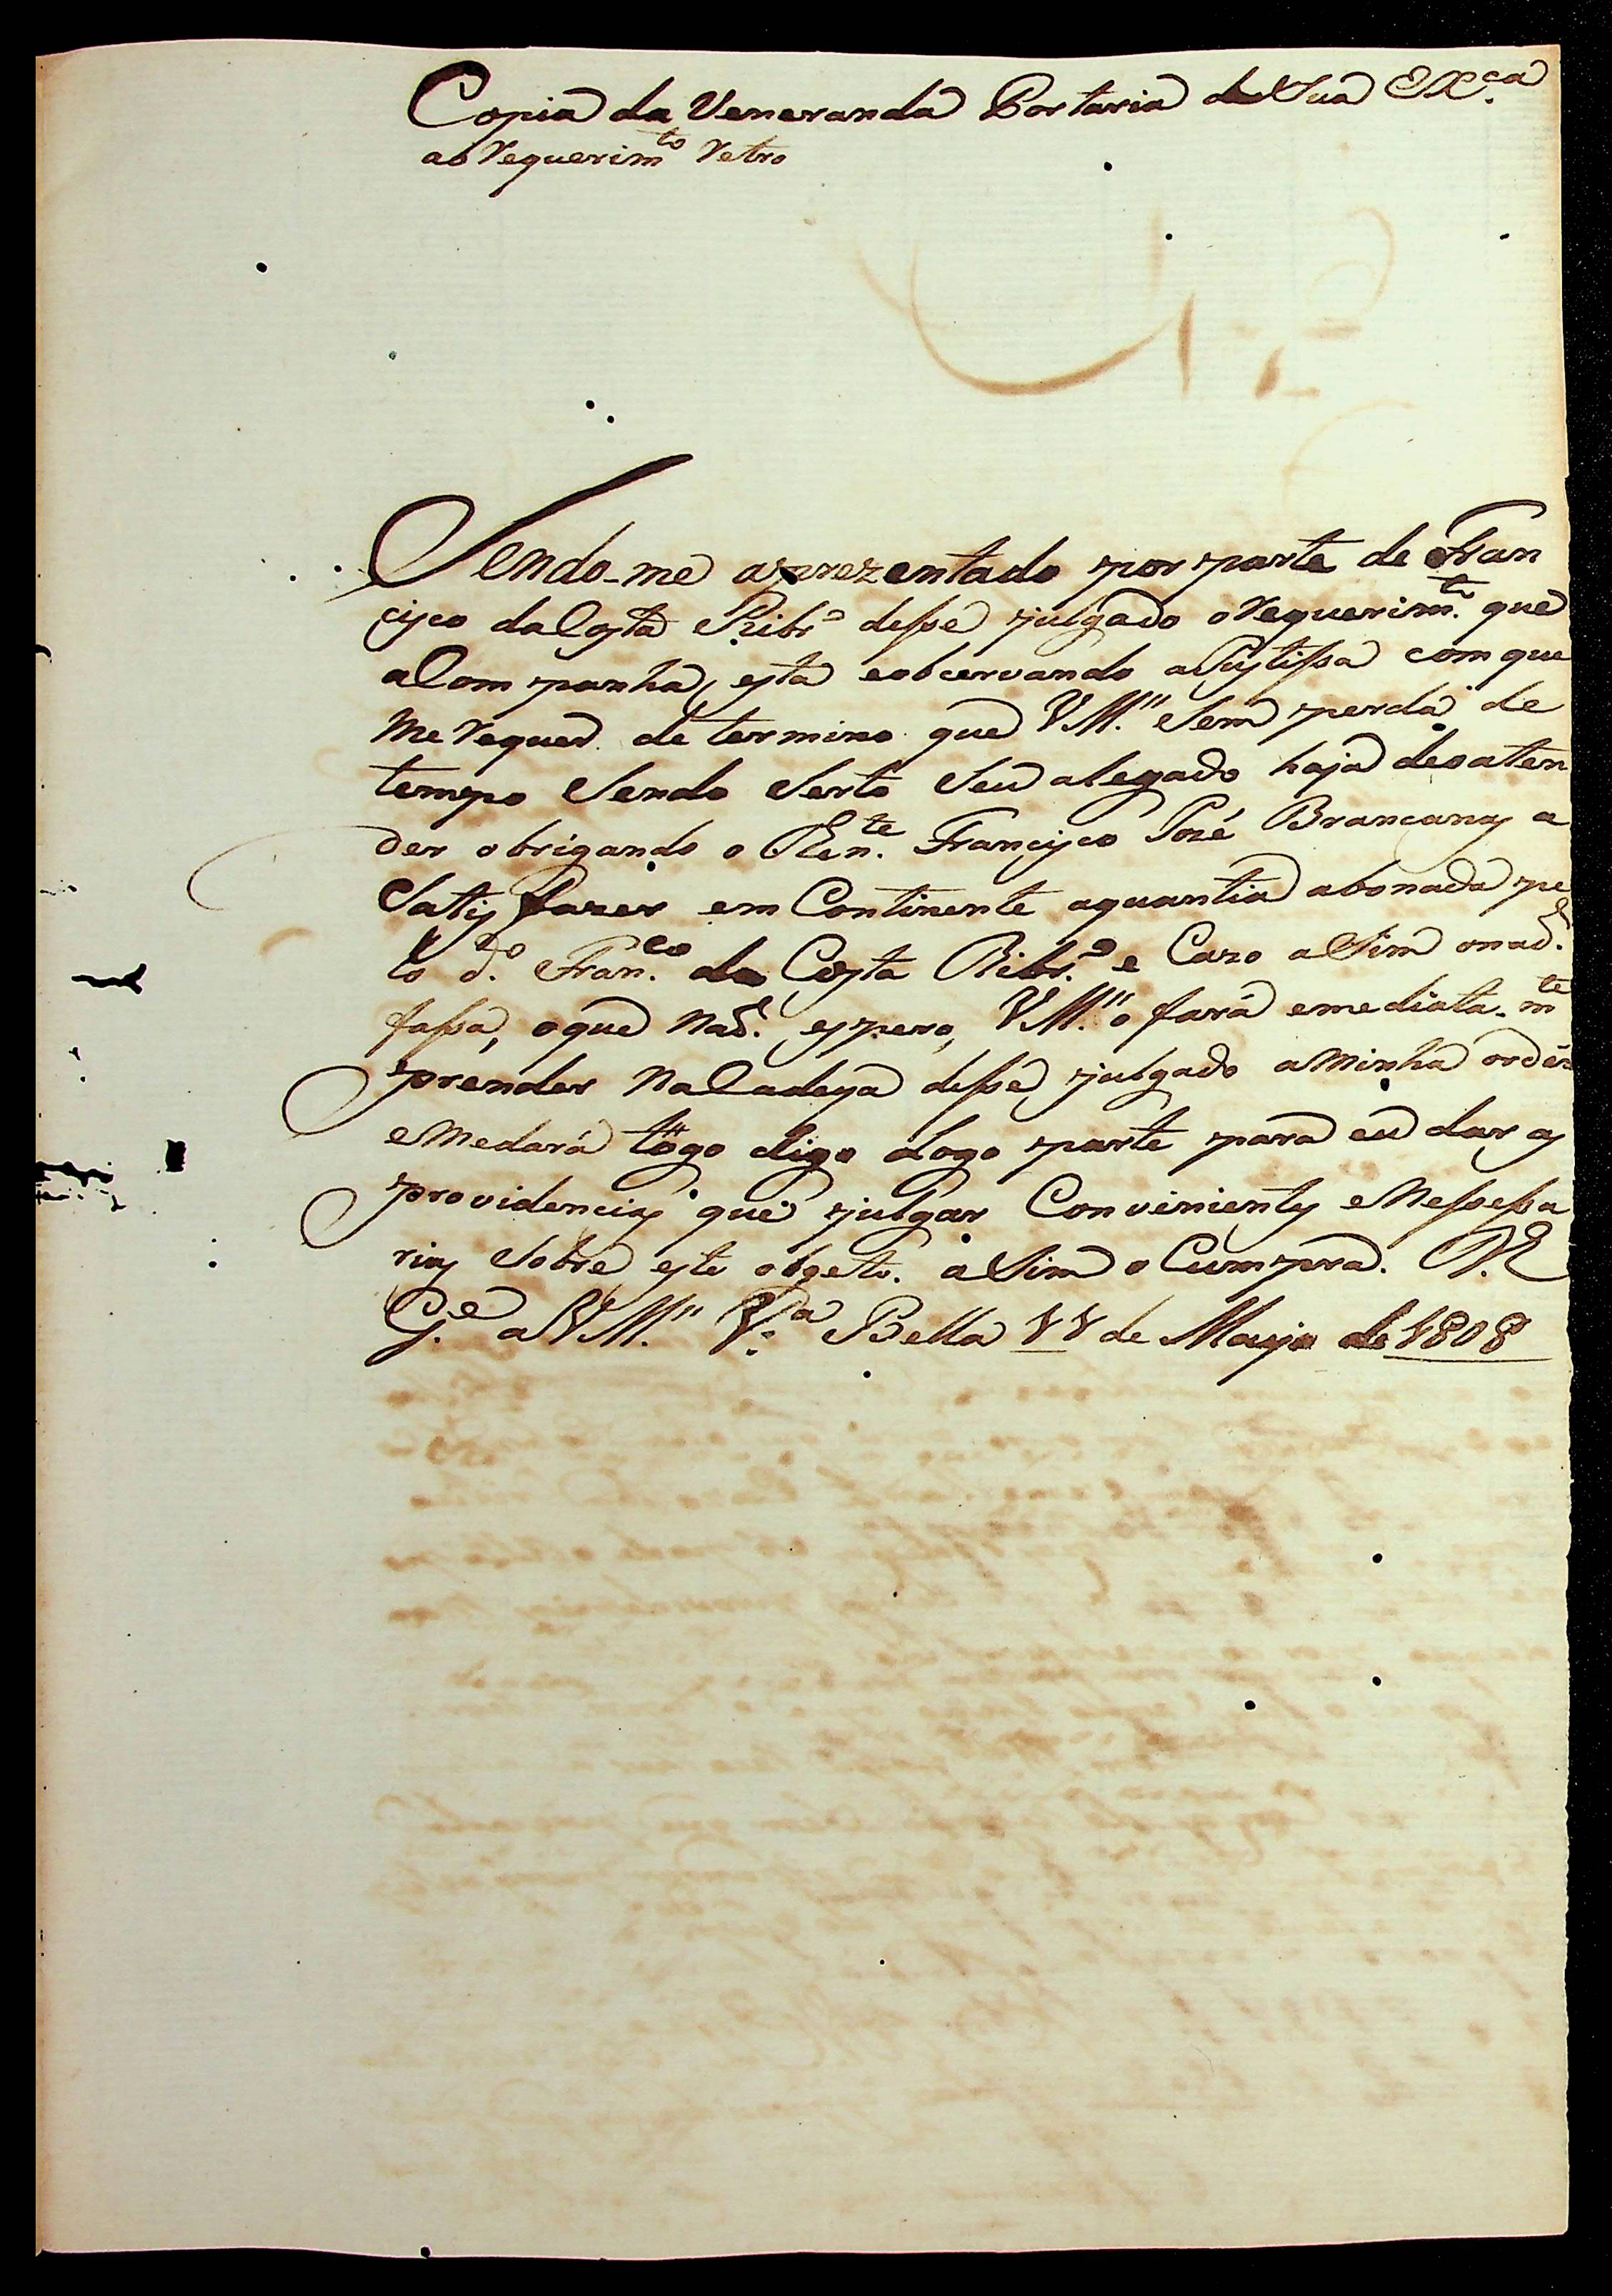 Copia da Veneranda Portaria de Sua Exc.ª
ao requerim.to retro
Sendo-me aprezentado por parte de Fran
cisco da Costa Ribr.º desse julgado o requerim.to que
a Companha, esta e obcervando a Justissa com que
me requer. determino que VM.ce Sem perda de
tempo Sendo Serto Seu alegado haja de o aten
der obrigando o Ten.te Francisco Jozé Brancanas a
Satisfazer em Continente a quantia abonada pe
lo d.º Fran.co da Costa Ribr.º e Cazo a Sim o naõ.
fassa, o que Naõ. espero, VM.ce o fará emediata-m.te
prender Na Cadeya desse julgado a minha ordem
e Me dará togo digo Logo parte para eu dar as
providencias que julgar Convinientes e Nessessa
rias Sobre este obgeto. a Sim o Cumpra. D.s
G.e a VM.ce V.ª Bella 11 de Mayo de 1808